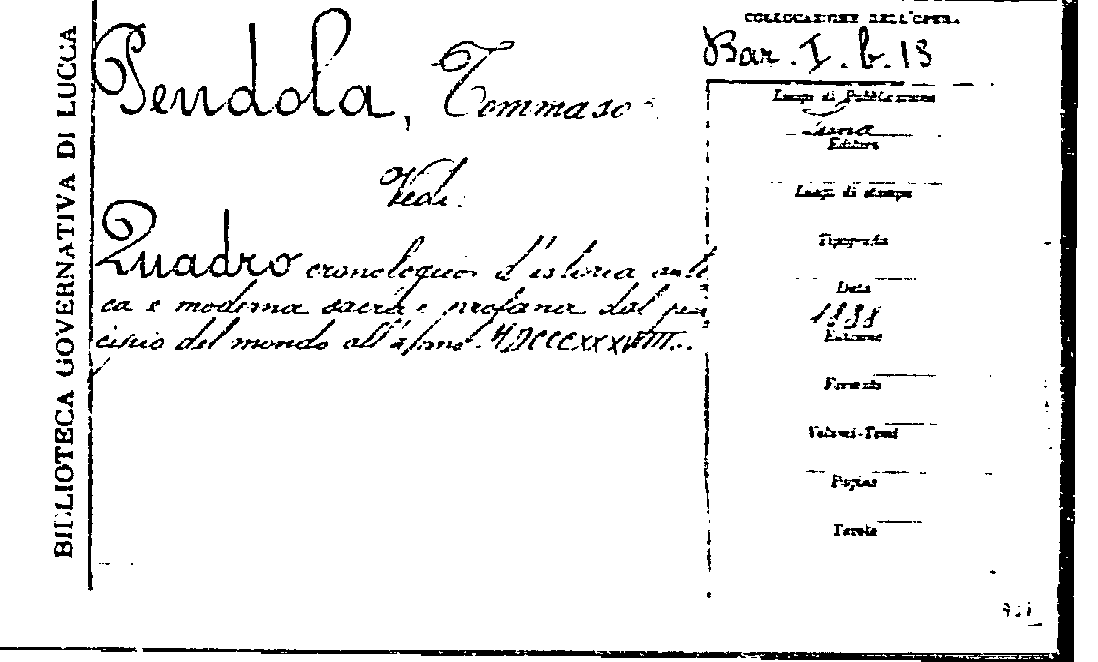 BIBLIOTECA GOVERNATIVA DI LUCCA
COLLOCAZIONE DELL'OPERA
Bar. I. b. 13
Pendola, Tommaso
Vedi
Quadro cronologico d'istoria anti
ca e moderna sacra e profana dal prin
cipio del mondo all'anno MDCCCXXXVIII.
Luogo di Pubblicazione
Editore
Luogo di stampa
Tipografia
Data
1838
Edizione
Formato
Volumi-Tomi
Pagine
Tavole